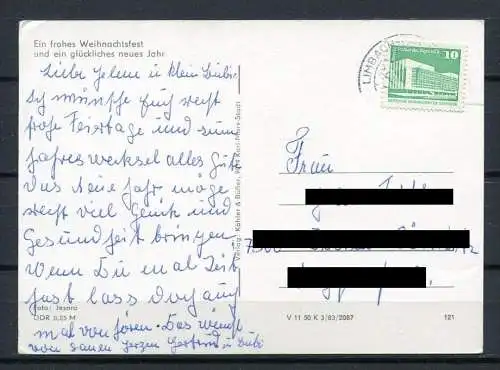 Ein frohes Weihnachtsfest
und ein glückliches neues Jahr
Liebe Helene u klein Bübi.
Ich wünsche Euch recht
frohe Feiertage und zum
Jahreswechsel alles Gute
Das Neue Jahr möge
recht viel Glück und
Gesundheit bringen
Wenn Du mal Zeit
hast lass doch auch
mal von hören. Das wünscht
von
Herzen Gertrud u Bübi
Foto: Jesora
DDR 0,25 M
Verlag Köhler & Büffel, Karl-Marx-Stadt
LIMBACH
10
Frau
V 11 50 K 3/83/2087
121